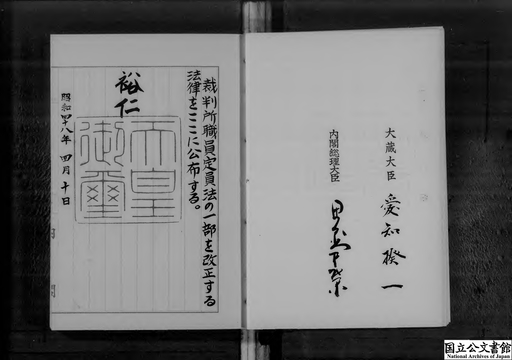 大蔵大臣 愛知揆一
内閣総理大臣 田中角榮
裁判所職員定員法の一部を改正する
法律をここに公布する。
裕仁
天皇
御璽
昭和四十八年 四月 十日
国立公文書館
National Archives of Japan